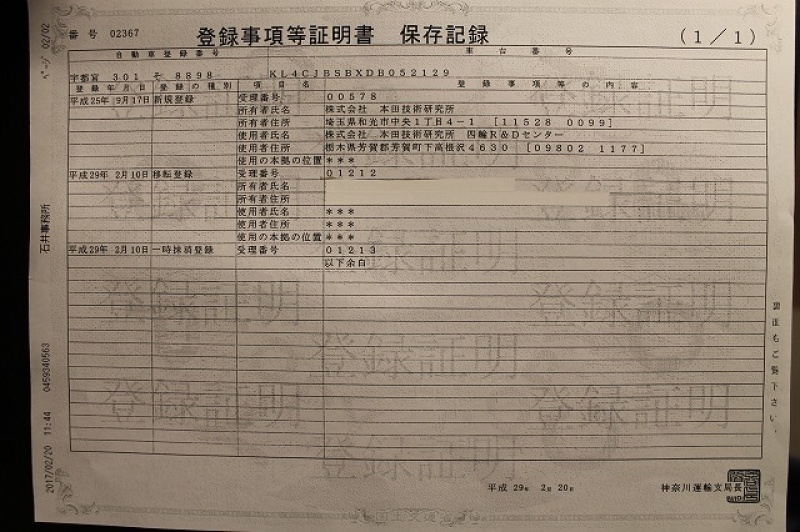 番号 02367
登録事項等証明書 保存記録
(1/1)
自動車登録番号 車台番号
宇都宮 301 そ 8898 KL4CJBSBXDB052129
登録年月日 登録の種別 項目名 登録事項等の内容
平成25年 9月17日 新規登録 受理番号 00578
所有者氏名 株式会社 本田技術研究所
所有者住所 埼玉県和光市中央1丁目4-1 [11528 0099]
使用者氏名 株式会社 本田技術研究所 四輪R&Dセンター
使用者住所 栃木県芳賀郡芳賀町下高根沢4630 [09802 1177]
使用の本拠の位置 ***
平成29年 2月10日 移転登録 受理番号 01212
所有者氏名
所有者住所
使用者氏名 ***
使用者住所 ***
使用の本拠の位置 ***
平成29年 2月10日 一時抹消登録 受理番号 01213
以下余白
登録証明
平成 29年 2月 20日 神奈川運輸支局長
裏面もご覧下さい。
ページ 02/02
石井事務所
0459340563
2017/02/20 11:44